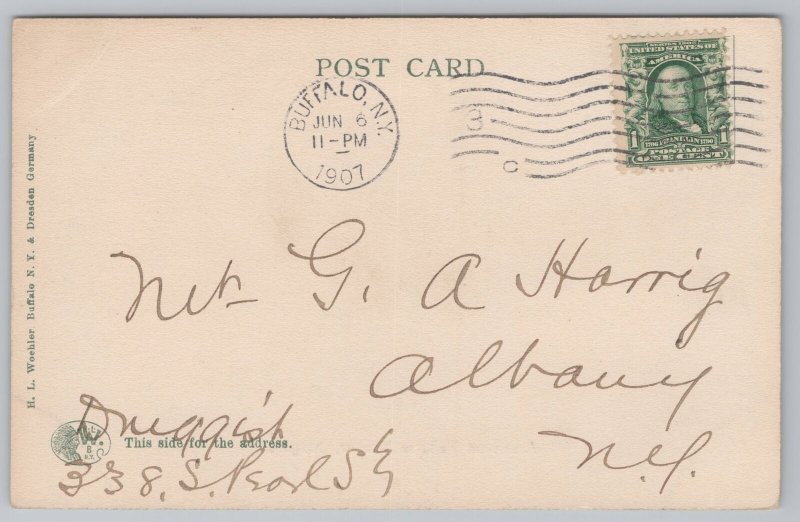 POST CARD
BUFFALO, N.Y.
JUN 6
11-PM
1907
3
C
SERIES 1902
UNITED STATES OF
AMERICA
1 FRANKLIN 1
1706 1790
POSTAGE
ONE CENT
H. L. Woehler Buffalo N. Y. & Dresden Germany
G. A Harrig
Albany
N.Y.
Druggist
W.
B
N.Y.
This side for the address.
338, S. Pearl St